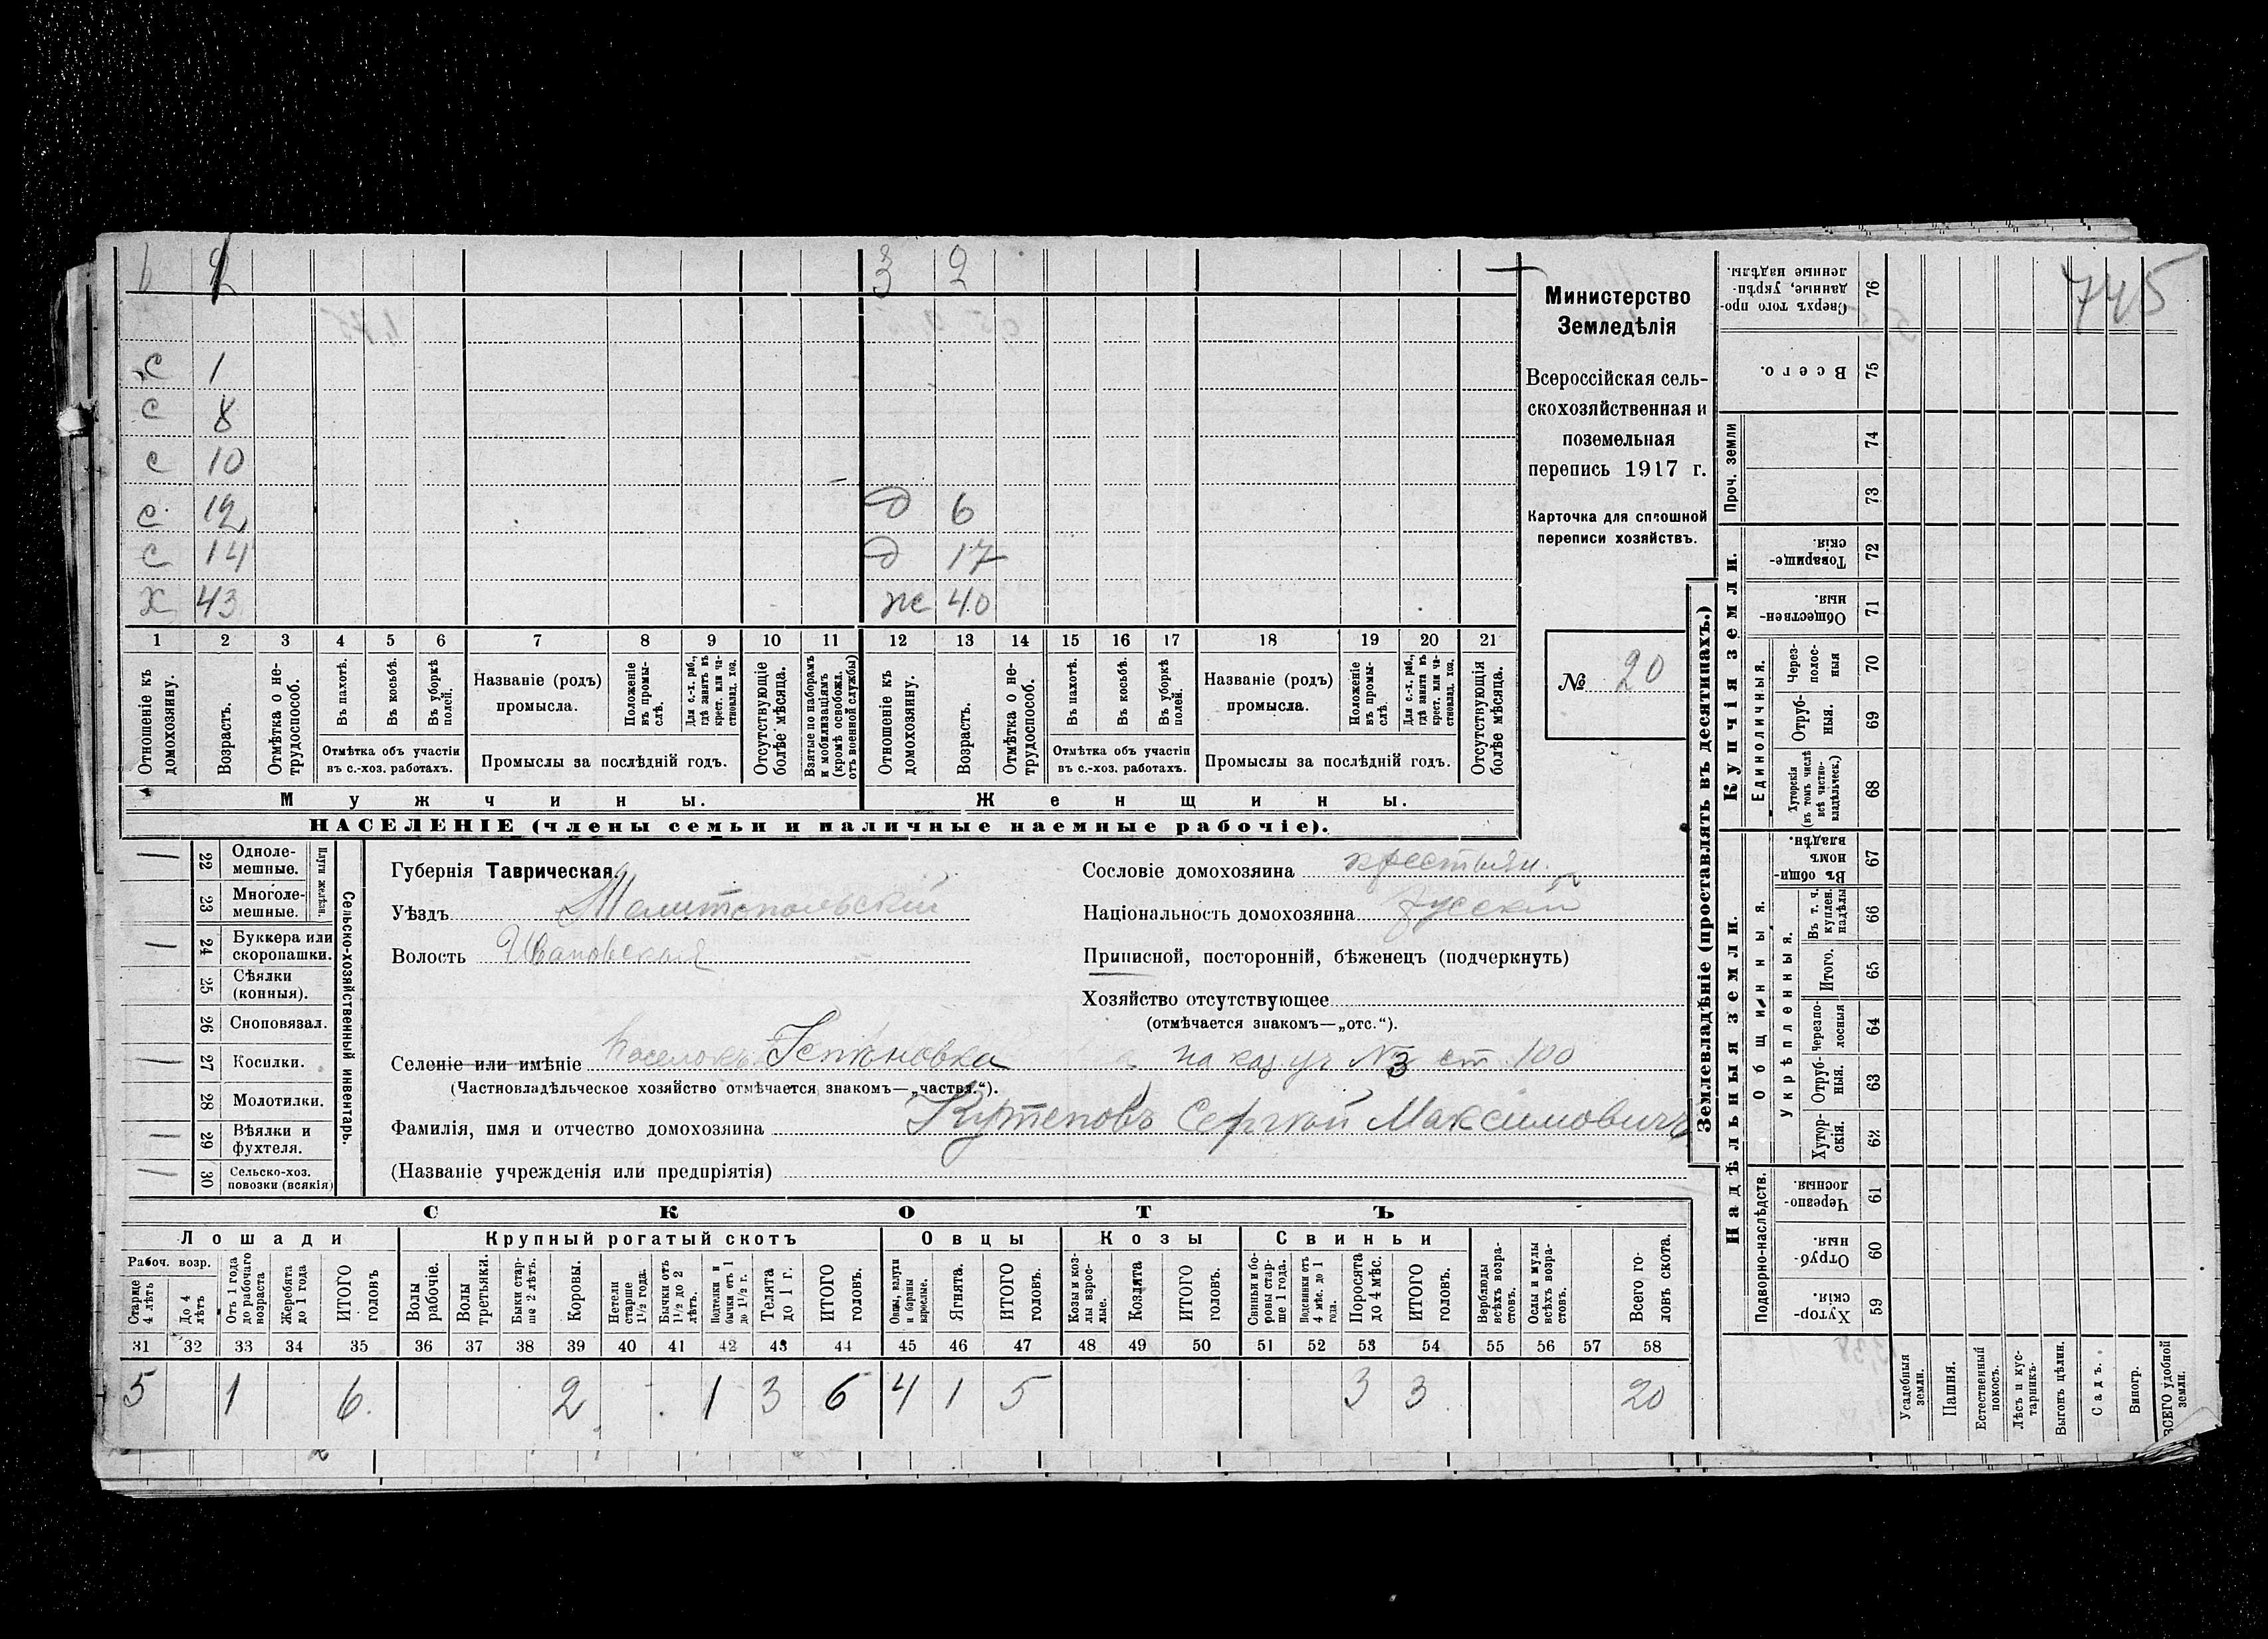 6 2 3 2
с 1
с 8
с 10
с 12 д 6
с 14 д 17
х 43 ж 40
1 2 3 4 5 6 7 8 9 10 11 12 13 14 15 16 17 18 19 20 21
Отношеніе къ домохозяину.
Возрастъ.
Отмѣтка о не-трудоспособ.
Въ пахотѣ.
Въ косьбѣ.
Въ уборкѣ полей.
Отмѣтка объ участіи
въ с.-хоз. работахъ.
Названіе (родъ)
промысла.
Положеніе въ промы-слѣ.
Для с.-х. раб., гдѣ занятъ въ крест. или ча-стновлад. хоз.
Промыслы за послѣдній годъ.
Отсутствующіе болѣе мѣсяца.
Взятые по наборамъ и мобилизаціямъ (кромѣ освобожд. отъ военной службы)
Отношеніе къ домохозяину.
Возрастъ.
Отмѣтка о не-трудоспособ.
Въ пахотѣ.
Въ косьбѣ.
Въ уборкѣ полей.
Отмѣтка объ участіи
въ с.-хоз. работахъ.
Названіе (родъ)
промысла.
Положеніе въ промы-слѣ.
Для с.-х. раб., гдѣ занята въ крест. или ча-стновлад. хоз.
Промыслы за послѣдній годъ.
Отсутствующія болѣе мѣсяца.
Мужчины. Женщины.
НАСЕЛЕНІЕ (члены семьи и наличные наемные рабочіе).
Министерство
Земледѣлія
Всероссійская сель-
скохозяйственная и
поземельная
перепись 1917 г.
Карточка для сплошной
переписи хозяйствъ.
№ 20
22 Одноле-мешные.
23 Многоле-мешные.
Плуги желѣзн.
24 Буккера или скоропашки.
25 Сѣялки (конныя).
26 Сноповязал.
27 Косилки.
28 Молотилки.
29 Вѣялки и фухтеля.
30 Сельско-хоз. повозки (всякія)
Сельско-хозяйственный инвентарь.
Губернія Таврическая.
Уѣздъ Мелитопольскій
Волость Ивановская
Сословіе домохозяина крестьян.
Національность домохозяина русскій
Приписной, посторонній, бѣженецъ (подчеркнуть)
Хозяйство отсутствующее
(отмѣчается знакомъ—„отс.“).
Селеніе или имѣніе Поселокъ на каз. уч № 3 ст. 100
(Частновладѣльческое хозяйство отмѣчается знакомъ—„частвл.“).
Фамилія, имя и отчество домохозяина Кутеповъ Сергѣй Максимовичъ
(Названіе учрежденія или предпріятія)
СКОТЪ
Лошади Крупный рогатый скотъ Овцы Козы Свиньи
Рабоч. возр.
Старше 4 лѣтъ
До 4 лѣтъ
Отъ 1 года до рабочаго возраста
Жеребята до 1 года
ИТОГО головъ
Волы рабочіе.
Волы третьяки.
Быки стар-ше 2 лѣтъ.
Коровы.
Нетели старше 1½ года.
Бычки отъ 1½ до 2 лѣтъ.
Подтелки и бычки отъ 1 до 1½ г.
Телята до 1 г.
ИТОГО головъ.
Овцы, валухи и бараны взрослые.
Ягнята.
ИТОГО головъ.
Козы и коз-лы взрос-лые.
Козлята
ИТОГО головъ.
Свиньи и бо-ровы стар-ше 1 года.
Подсвинки отъ 4 мѣс. до 1 года.
Поросята до 4 мѣс.
ИТОГО головъ.
Верблюды всѣхъ возра-стовъ.
Ослы и мулы всѣхъ возра-стовъ.
Всего го-ловъ скота.
31 32 33 34 35 36 37 38 39 40 41 42 43 44 45 46 47 48 49 50 51 52 53 54 55 56 57 58
5 1 6 2 1 3 6 4 1 5 3 3 20
745
Землевладѣніе (проставлять въ десятинахъ.)
Сверхъ того про-данные, укрѣп-ленные надѣлы. 76
Всего. 75
Проч. земли 74 73
Купчія земли.
Товарище-скія. 72
Обществен-ныя. 71
Единоличныя.
Через-полос-ныя 70
Отруб-ныя. 69
Хуторскія (въ томъ числѣ всѣ частно-владѣльческ.) 68
Надѣльныя земли.
Общинныя.
Въ общи-номъ владѣн. 67
Укрѣпленныя.
Въ т. ч. куплен. надѣлы 66
Итого. 65
Черезпо-лосныя 64
Отруб-ныя. 63
Хутор-скія. 62
Подворно-наслѣдств.
Черезпо-лосныя. 61
Отруб-ныя. 60
Хутор-скія. 59
Усадебныя земли.
Пашня.
Естественный покосъ.
Лѣсъ и кус-тарникъ.
Выгонъ цѣлин.
Садъ.
Виногр.
ВСЕГО удобной земли.